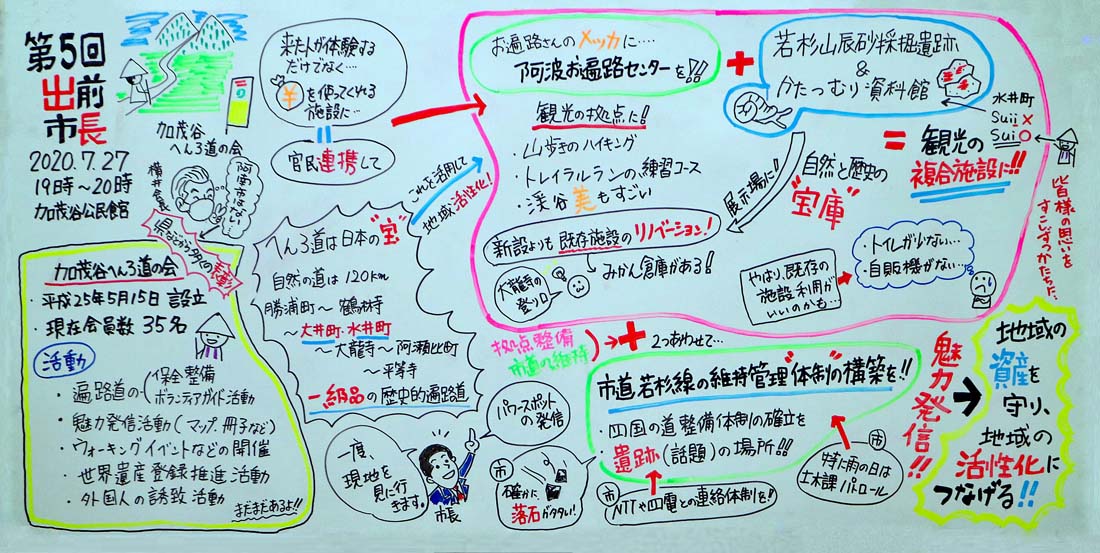 第5回
出前
市長
2020.7.27
19時〜20時
加茂谷公民館
加茂谷
へんろ道の会
横井会長
県などから9つの表彰
加茂谷へんろ道の会
・平成25年5月15日 設立
・現在会員数 35名
活動
・遍路道の(保全整備
ボランティアガイド活動
・魅力発信活動(マップ、冊子など)
・ウォーキングイベントなどの開催
・世界遺産登録推進活動
・外国人の誘致活動
まだまだあるよ!!
来た人が体験する
だけでなく…
¥を使ってくれる
施設に…
官民連携して
へんろ道は日本の"宝"
自然の道は120km
勝浦町〜鶴林寺
〜大井町・水井町
〜大龍寺〜阿瀬比町
〜平等寺
一級品の歴史的遍路道
これを活用して
地域活性化!
お遍路さんのメッカに…
阿波お遍路センターを!!
+
若杉山辰砂採掘遺跡
&
かたつむり資料館
水井町
Suii ×
Sui ○
観光の拠点に!!
・山歩きのハイキング
・トレイラルランの練習コース
・渓谷美もすごい
展示場に!
自然と歴史の
"宝庫"
=観光の
複合施設に!!
新設よりも既存施設のリノベーション!
大龍寺の
登り口
みかん倉庫がある!!
やはり、既存の
施設利用が
いいのかも…
・トイレが少ない…
・自販機がない…
皆様の思いを
すこしずつかたちに…
拠点整備
市道の維持
+
2つあわせて…
市道若杉線の維持管理"体制"の構築を!!
・四国の道整備体制の確立を
遺跡(話題)の場所!!
市
NTTや四電との連絡体制を!!
市
特に雨の日は
土木課パトロール
パワースポット
の発信
市
確かに
落石が多い!
一度、
現地を
見に行
きます。
市長
魅力発信!!
地域の
資産を
守り、
地域の
活性化に
つなげる!!